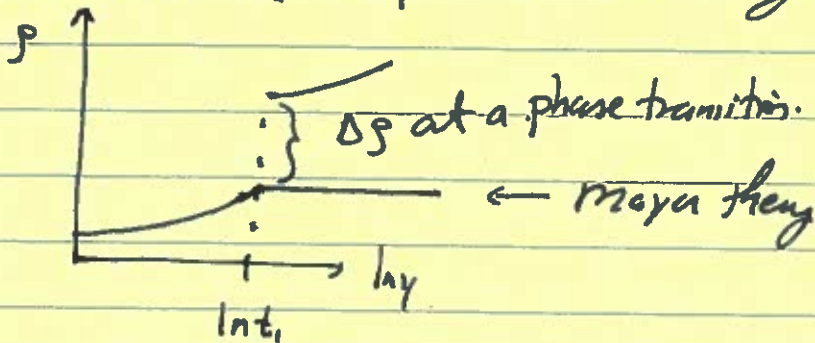 ρ
Δρ at a phase transition.
← Mayer theory
ln y
ln t₁